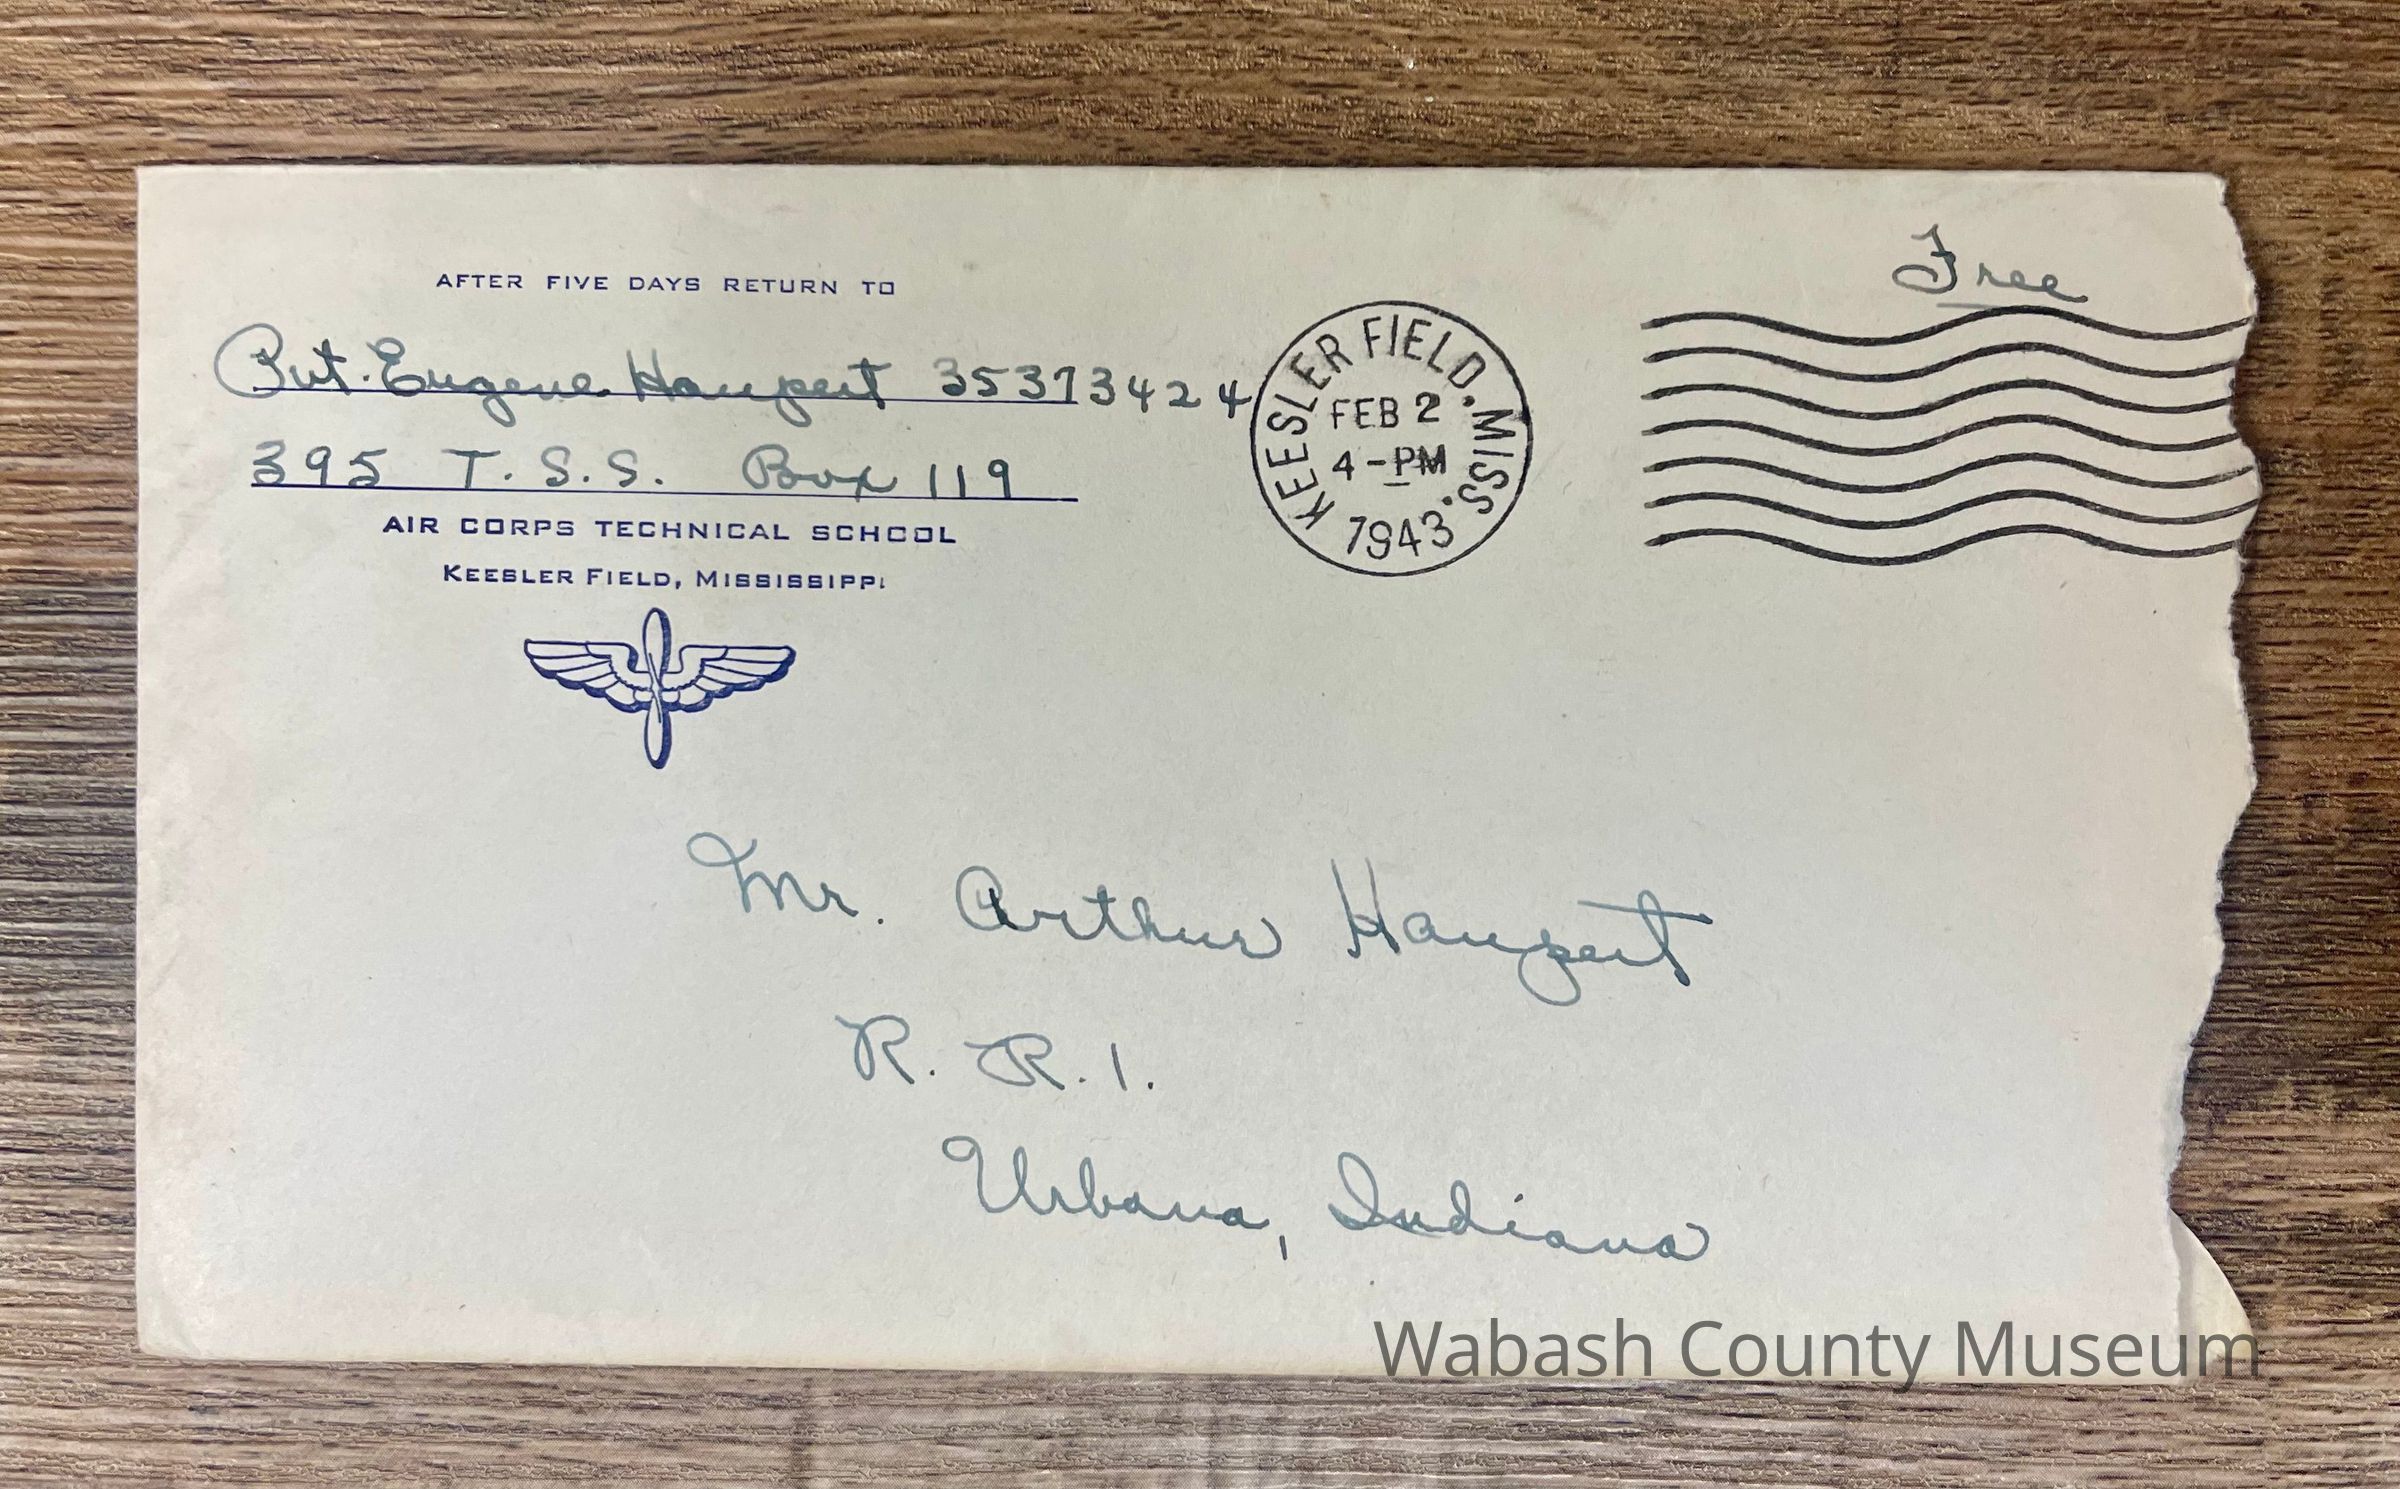 AFTER FIVE DAYS RETURN TO
Pvt. Eugene Haupert 35373424
395 T.S.S. Box 119
AIR CORPS TECHNICAL SCHOOL
KEESLER FIELD, MISSISSIPPI
KEESLER FIELD. MISS.
FEB 2
4-PM
1943
Free
Mr. Arthur Haupert
R. R. 1.
Urbana, Indiana
Wabash County Museum